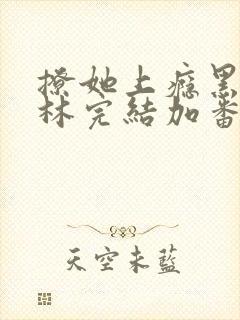 撩她上癮黑
林完結加番
天空未藍